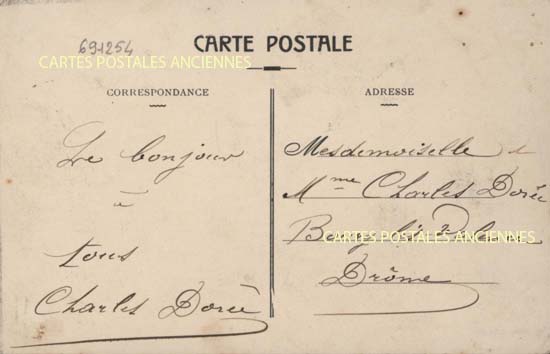 691254
CARTE POSTALE
CARTES POSTALES ANCIENNES
CORRESPONDANCE
Le bonjour
à
tous
Charles Dorée
ADRESSE
Mesdemoiselle
Mme Charles Dorée
Bourg lès Valence
CARTES POSTALES ANCIENNES
Drôme